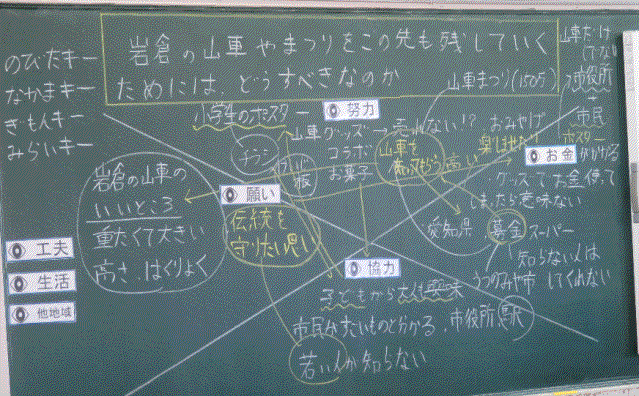 のびたキー
なかまキー
ぎもんキー
みらいキー
岩倉の山車やまつりをこの先も残していく
ためには、どうすべきなのか
山車まつり(150万)
山車だけ
市役所
市民
ポスター
小学生のポスター
努力
チラシ
山車グッズ→売れない!?
コラボ
お菓子
おみやげ
山車も
お金がかかる
グッズでお金使って
しまったら意味ない
岩倉の山車の
いいところ
重たくて大きい
高さ、はくりょく
願い
伝統を
守りたい思い
工夫
生活
他地域
協力
愛知県
募金
スーパー
知らない人は
してくれない
うつのみや市
子どもから
市民が
市役所、駅
若い人が知らない